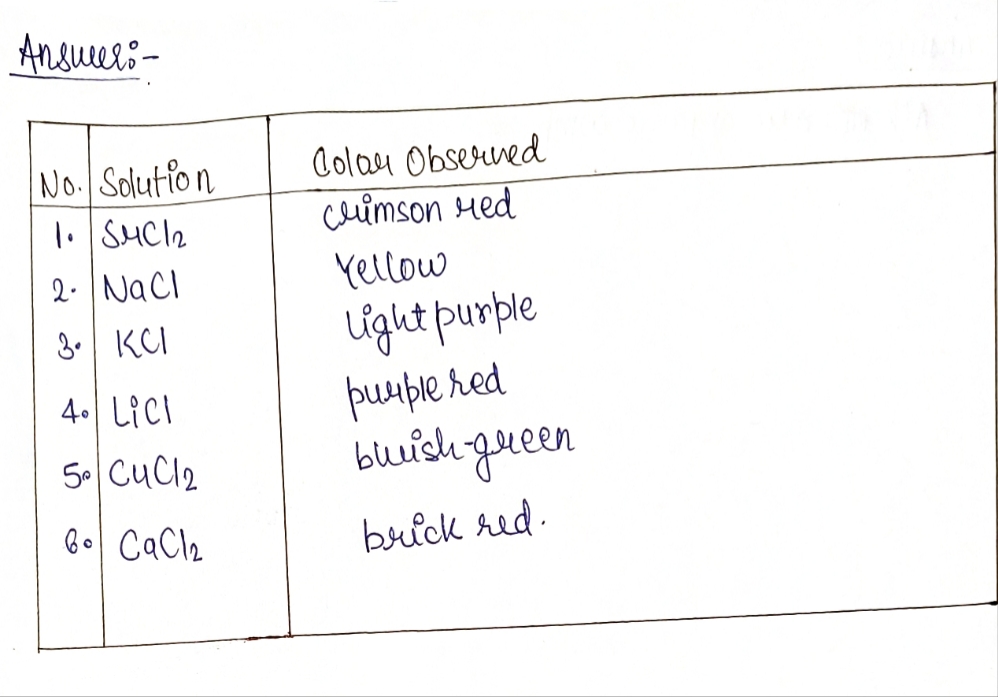 Answer:-
No. Solution Colour Observed
1. SrCl2 crimson red
2. NaCl Yellow
3. KCl light purple
4. LiCl purple red
5. CuCl2 bluish-green
6. CaCl2 brick red.